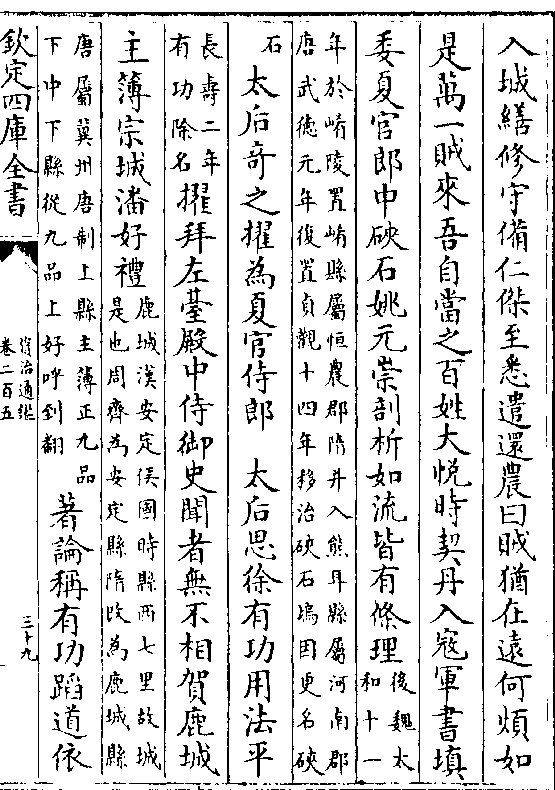 入城繕修守備仁傑至悉遣還農曰賊猶在遠何煩如
是萬一賊來吾自當之百姓大悦時契丹入寇軍書填
委夏官郎中硤石姚元崇剖析如流皆有條理後魏太
和十一
年於崤陵置崤縣屬恒農郡隋并入熊耳縣屬河南郡
唐武德元年復置貞觀十四年移治硤石塢因更名硤
石
太后竒之擢為夏官侍郎　太后思徐有功用法平
長壽二年
有功除名
擢拜左臺殿中侍御史聞者無不相賀鹿城
主簿宗城潘好禮
鹿城漢安定侯國時縣西七里故城
是也周齊為安定縣隋改為鹿城縣
唐屬冀州唐制上縣主簿正九品
下中下縣從九品上好呼到翻
著論稱有功蹈道依
欽定四庫全書
資治通鑑
卷二百五
三十九